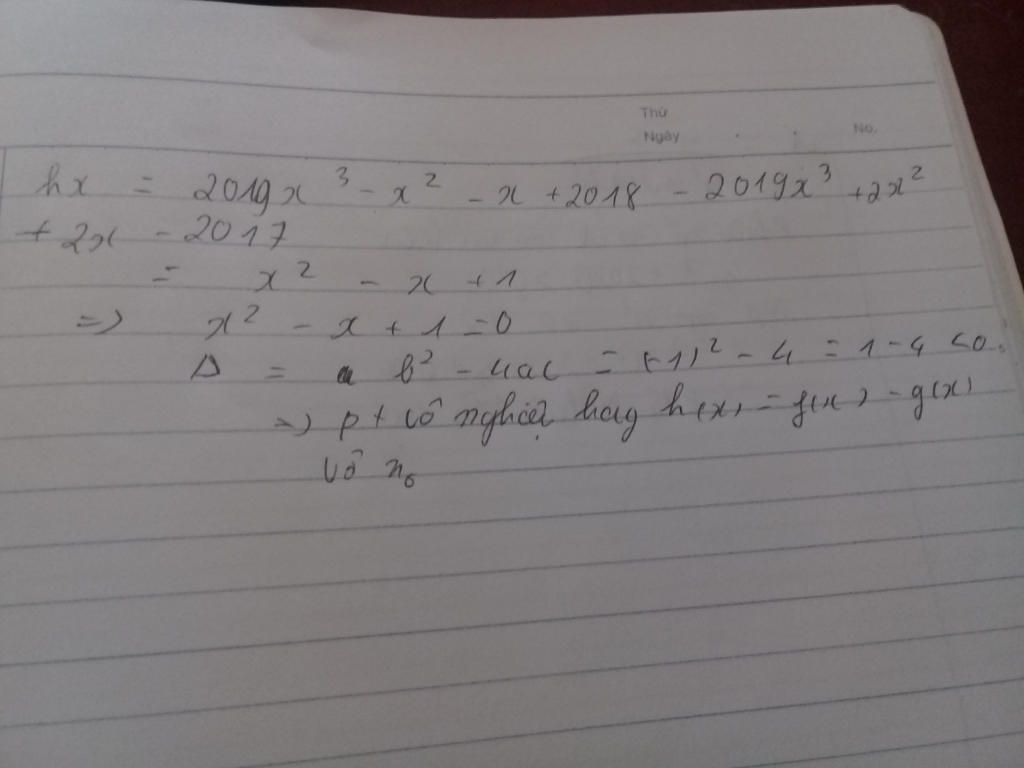 Thứ
Ngày . . No.
hx = 2019x³ - x² - x + 2018 - 2019x³ + 2x²
+ 2x - 2017
= x² - x + 1
=> x² - x + 1 = 0
Δ = b² - 4ac = (-1)² - 4 = 1 - 4 < 0.
=> pt vô nghiệm hay h(x) = f(x) - g(x)
vô n₀